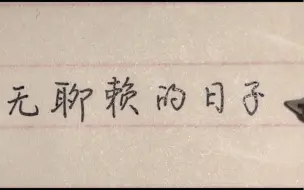 无聊赖的日子